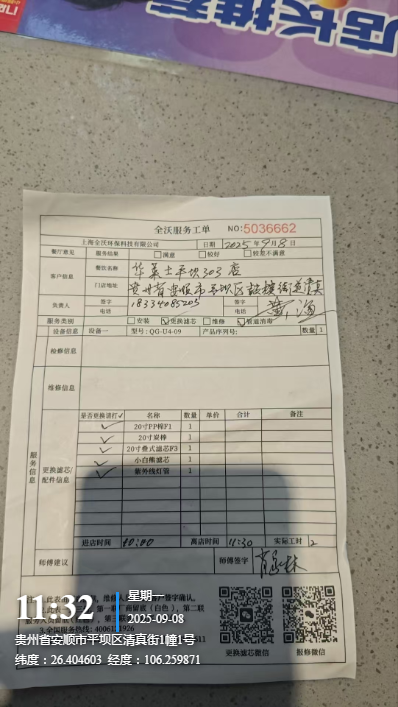 店长推荐
全沃服务工单 NO:5036662
上海全沃环保科技有限公司 日期 2025年9月8日
餐厅意见 服务结果 满意 较好 较差不满意
客户信息 餐饮名称 华莱士平坝303店
门店地址 贵州省安顺市平坝区鼓楼街道
负责人 签字 签字
电话 18334085205 电话
服务类别 安装 更换滤芯 维修 管道消毒
设备信息 设备一 型号:QG-U4-09 产品序列号: 数量 1
检修信息
维修信息
服务信息
更换滤芯/配件信息
是否更换请打✓ 名称 数量 单价 合计 备注
✓ 20寸PP棉F1 1
✓ 20寸炭棒 1
✓ 20寸叠式滤芯F3 1
✓ 小白雕滤芯 1
✓ 紫外线灯管 1
进店时间 10:00 离店时间 11:30 实际工时 2
师傅建议 师傅签字
更换滤芯微信 报修微信
11:32 星期一
2025-09-08
贵州省安顺市平坝区清真街1幢1号
纬度:26.404603 经度:106.259871